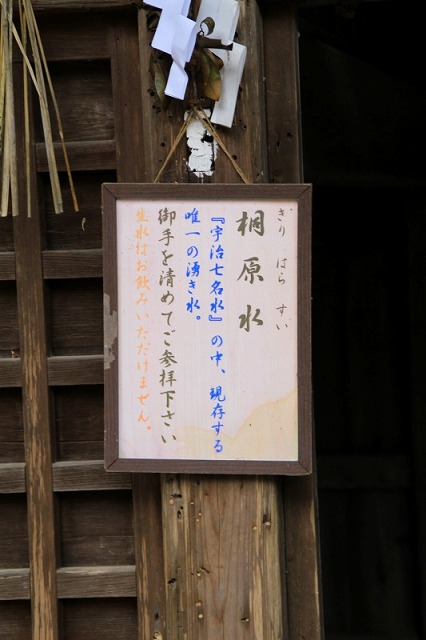 桐原水
きり はら すい
『宇治七名水』の中、現存する
唯一の湧き水。
御手を清めてご参拝下さい
生水はお飲みいただけません。